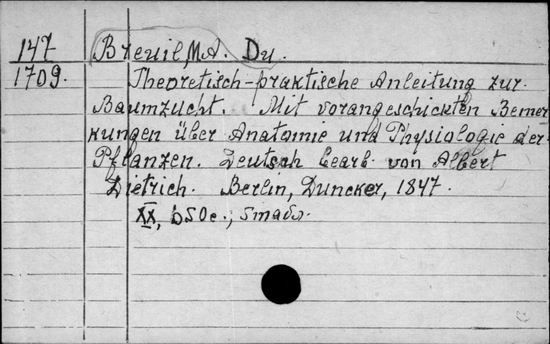 147 Breuil, M.A. Du.
1709. Theoretisch-praktische Anleitung zur
Baumzucht. Mit vorangeschickten Bemer
kungen über Anatomie und Physiologie der
Pflanzen. Deutsch bearb. von Albert
Dietrich. Berlin, Duncker, 1847.
XX, 650